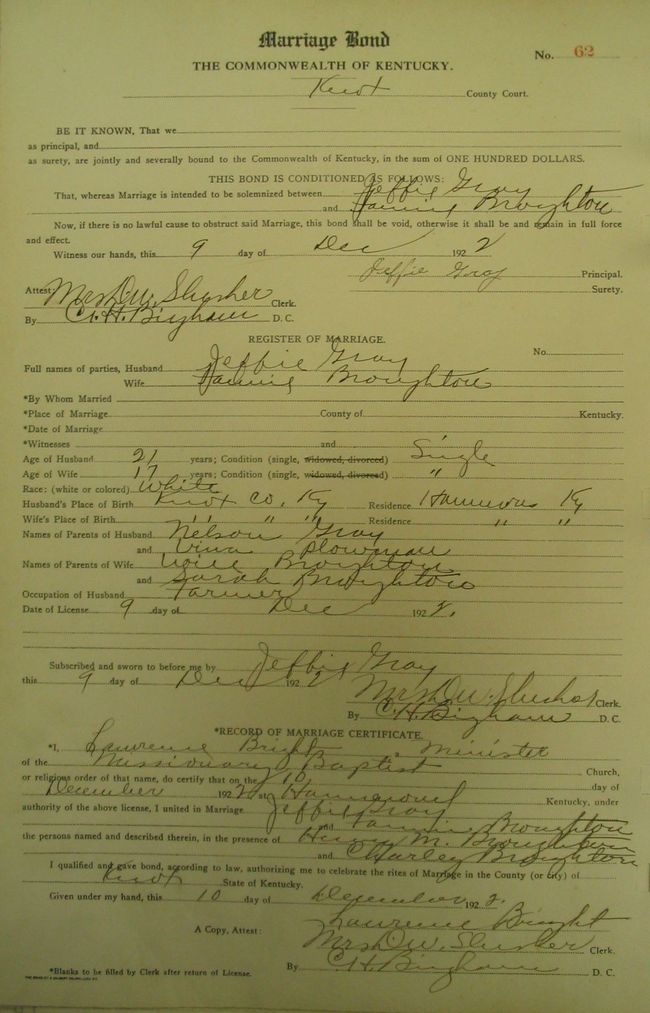 Marriage Bond
No. 62
THE COMMONWEALTH OF KENTUCKY.
Knox County Court.
BE IT KNOWN, That we
as principal, and
as surety, are jointly and severally bound to the Commonwealth of Kentucky, in the sum of ONE HUNDRED DOLLARS.
THIS BOND IS CONDITIONED AS FOLLOWS:
That, whereas Marriage is intended to be solemnized between Jeffie Gray
and Fannie Broughton
Now, if there is no lawful cause to obstruct said Marriage, this bond shall be void, otherwise it shall be and remain in full force
and effect.
Witness our hands, this 9 day of Dec 1922
Jeffie Gray Principal.
Surety.
Attest: Mrs D.W. Slusher Clerk.
By C.H. Bingham D. C.
REGISTER OF MARRIAGE.
No.
Full names of parties, Husband Jeffie Gray
Wife Fannie Broughton
*By Whom Married
*Place of Marriage County of Kentucky.
*Date of Marriage
*Witnesses and
Age of Husband 21 years; Condition (single, widowed, divorced) Single
Age of Wife 17 years; Condition (single, widowed, divorced) "
Race: (white or colored) White
Husband's Place of Birth Knox Co, Ky Residence Ky
Wife's Place of Birth " " " Residence " "
Names of Parents of Husband Nelson Gray
and Vina Plowman
Names of Parents of Wife Broughton
and Sarah Broughton
Occupation of Husband Farmer
Date of License 9 day of Dec 1922.
Subscribed and sworn to before me by Jeffie Gray
this 9 day of Dec 1922
Mrs D.W. Slusher Clerk.
By C.H. Bingham D. C.
*RECORD OF MARRIAGE CERTIFICATE.
*I, Lawrence Bright, Minister
of the Missionary Baptist Church,
or religious order of that name, do certify that on the 10 day of
December 1922 at Kentucky, under
authority of the above license, I united in Marriage Jeffie Gray
and Fannie Broughton
the persons named and described therein, in the presence of M. Broughton
and Charley Broughton
I qualified and gave bond, according to law, authorizing me to celebrate the rites of Marriage in the County (or city) of
Knox State of Kentucky.
Given under my hand, this 10 day of December 1922.
Lawrence Bright
A Copy, Attest: Mrs D.W. Slusher Clerk.
By C.H. Bingham D. C.
*Blanks to be filled by Clerk after return of License.